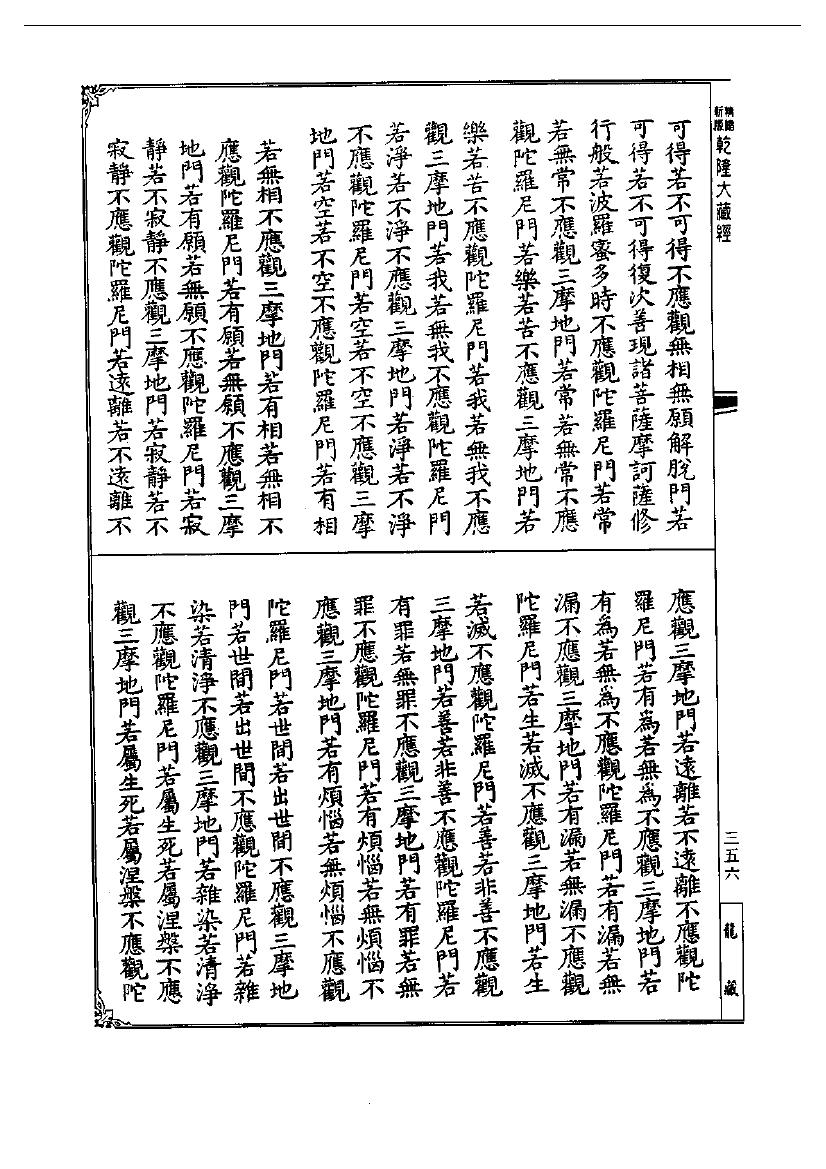 乾隆大藏經
可得若不可得不應觀無相無願解脫門若
可得若不可得復次善現諸菩薩摩訶薩修
行般若波羅蜜多時不應觀陀羅尼門若常
若無常不應觀三摩地門若常若無常不應
觀陀羅尼門若樂若苦不應觀三摩地門若
樂若苦不應觀陀羅尼門若我若無我不應
觀三摩地門若我若無我不應觀陀羅尼門
若淨若不淨不應觀三摩地門若淨若不淨
不應觀陀羅尼門若空若不空不應觀三摩
地門若空若不空不應觀陀羅尼門若有相
若無相不應觀三摩地門若有相若無相不
應觀陀羅尼門若有願若無願不應觀三摩
地門若有願若無願不應觀陀羅尼門若寂
靜若不寂靜不應觀三摩地門若寂靜若不
寂靜不應觀陀羅尼門若遠離若不遠離不
應觀三摩地門若遠離若不遠離不應觀陀
羅尼門若有為若無為不應觀三摩地門若
有為若無為不應觀陀羅尼門若有漏若無
漏不應觀三摩地門若有漏若無漏不應觀
陀羅尼門若生若滅不應觀三摩地門若生
若滅不應觀陀羅尼門若善若非善不應觀
三摩地門若善若非善不應觀陀羅尼門若
有罪若無罪不應觀三摩地門若有罪若無
罪不應觀陀羅尼門若有煩惱若無煩惱不
應觀三摩地門若有煩惱若無煩惱不應觀
陀羅尼門若世間若出世間不應觀三摩地
門若世間若出世間不應觀陀羅尼門若雜
染若清淨不應觀三摩地門若雜染若清淨
不應觀陀羅尼門若屬生死若屬涅槃不應
觀三摩地門若屬生死若屬涅槃不應觀陀
三五六
龍藏